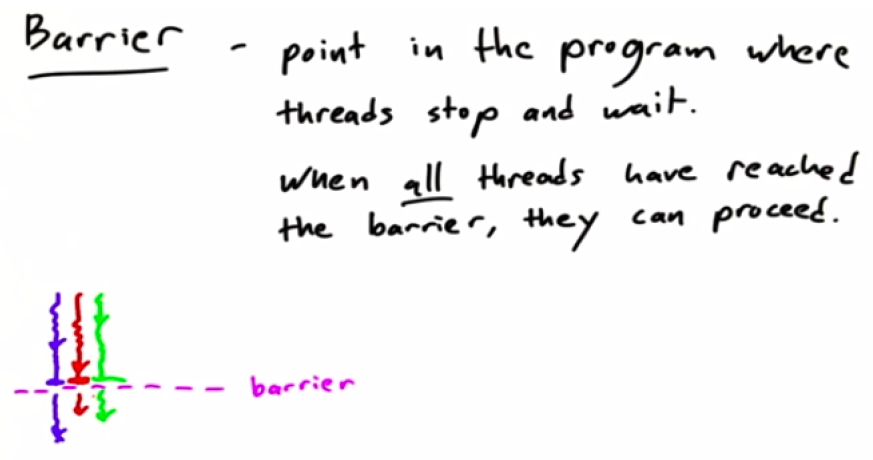 Barrier - point in the program where
threads stop and wait.
When all threads have reached
the barrier, they can proceed.
barrier